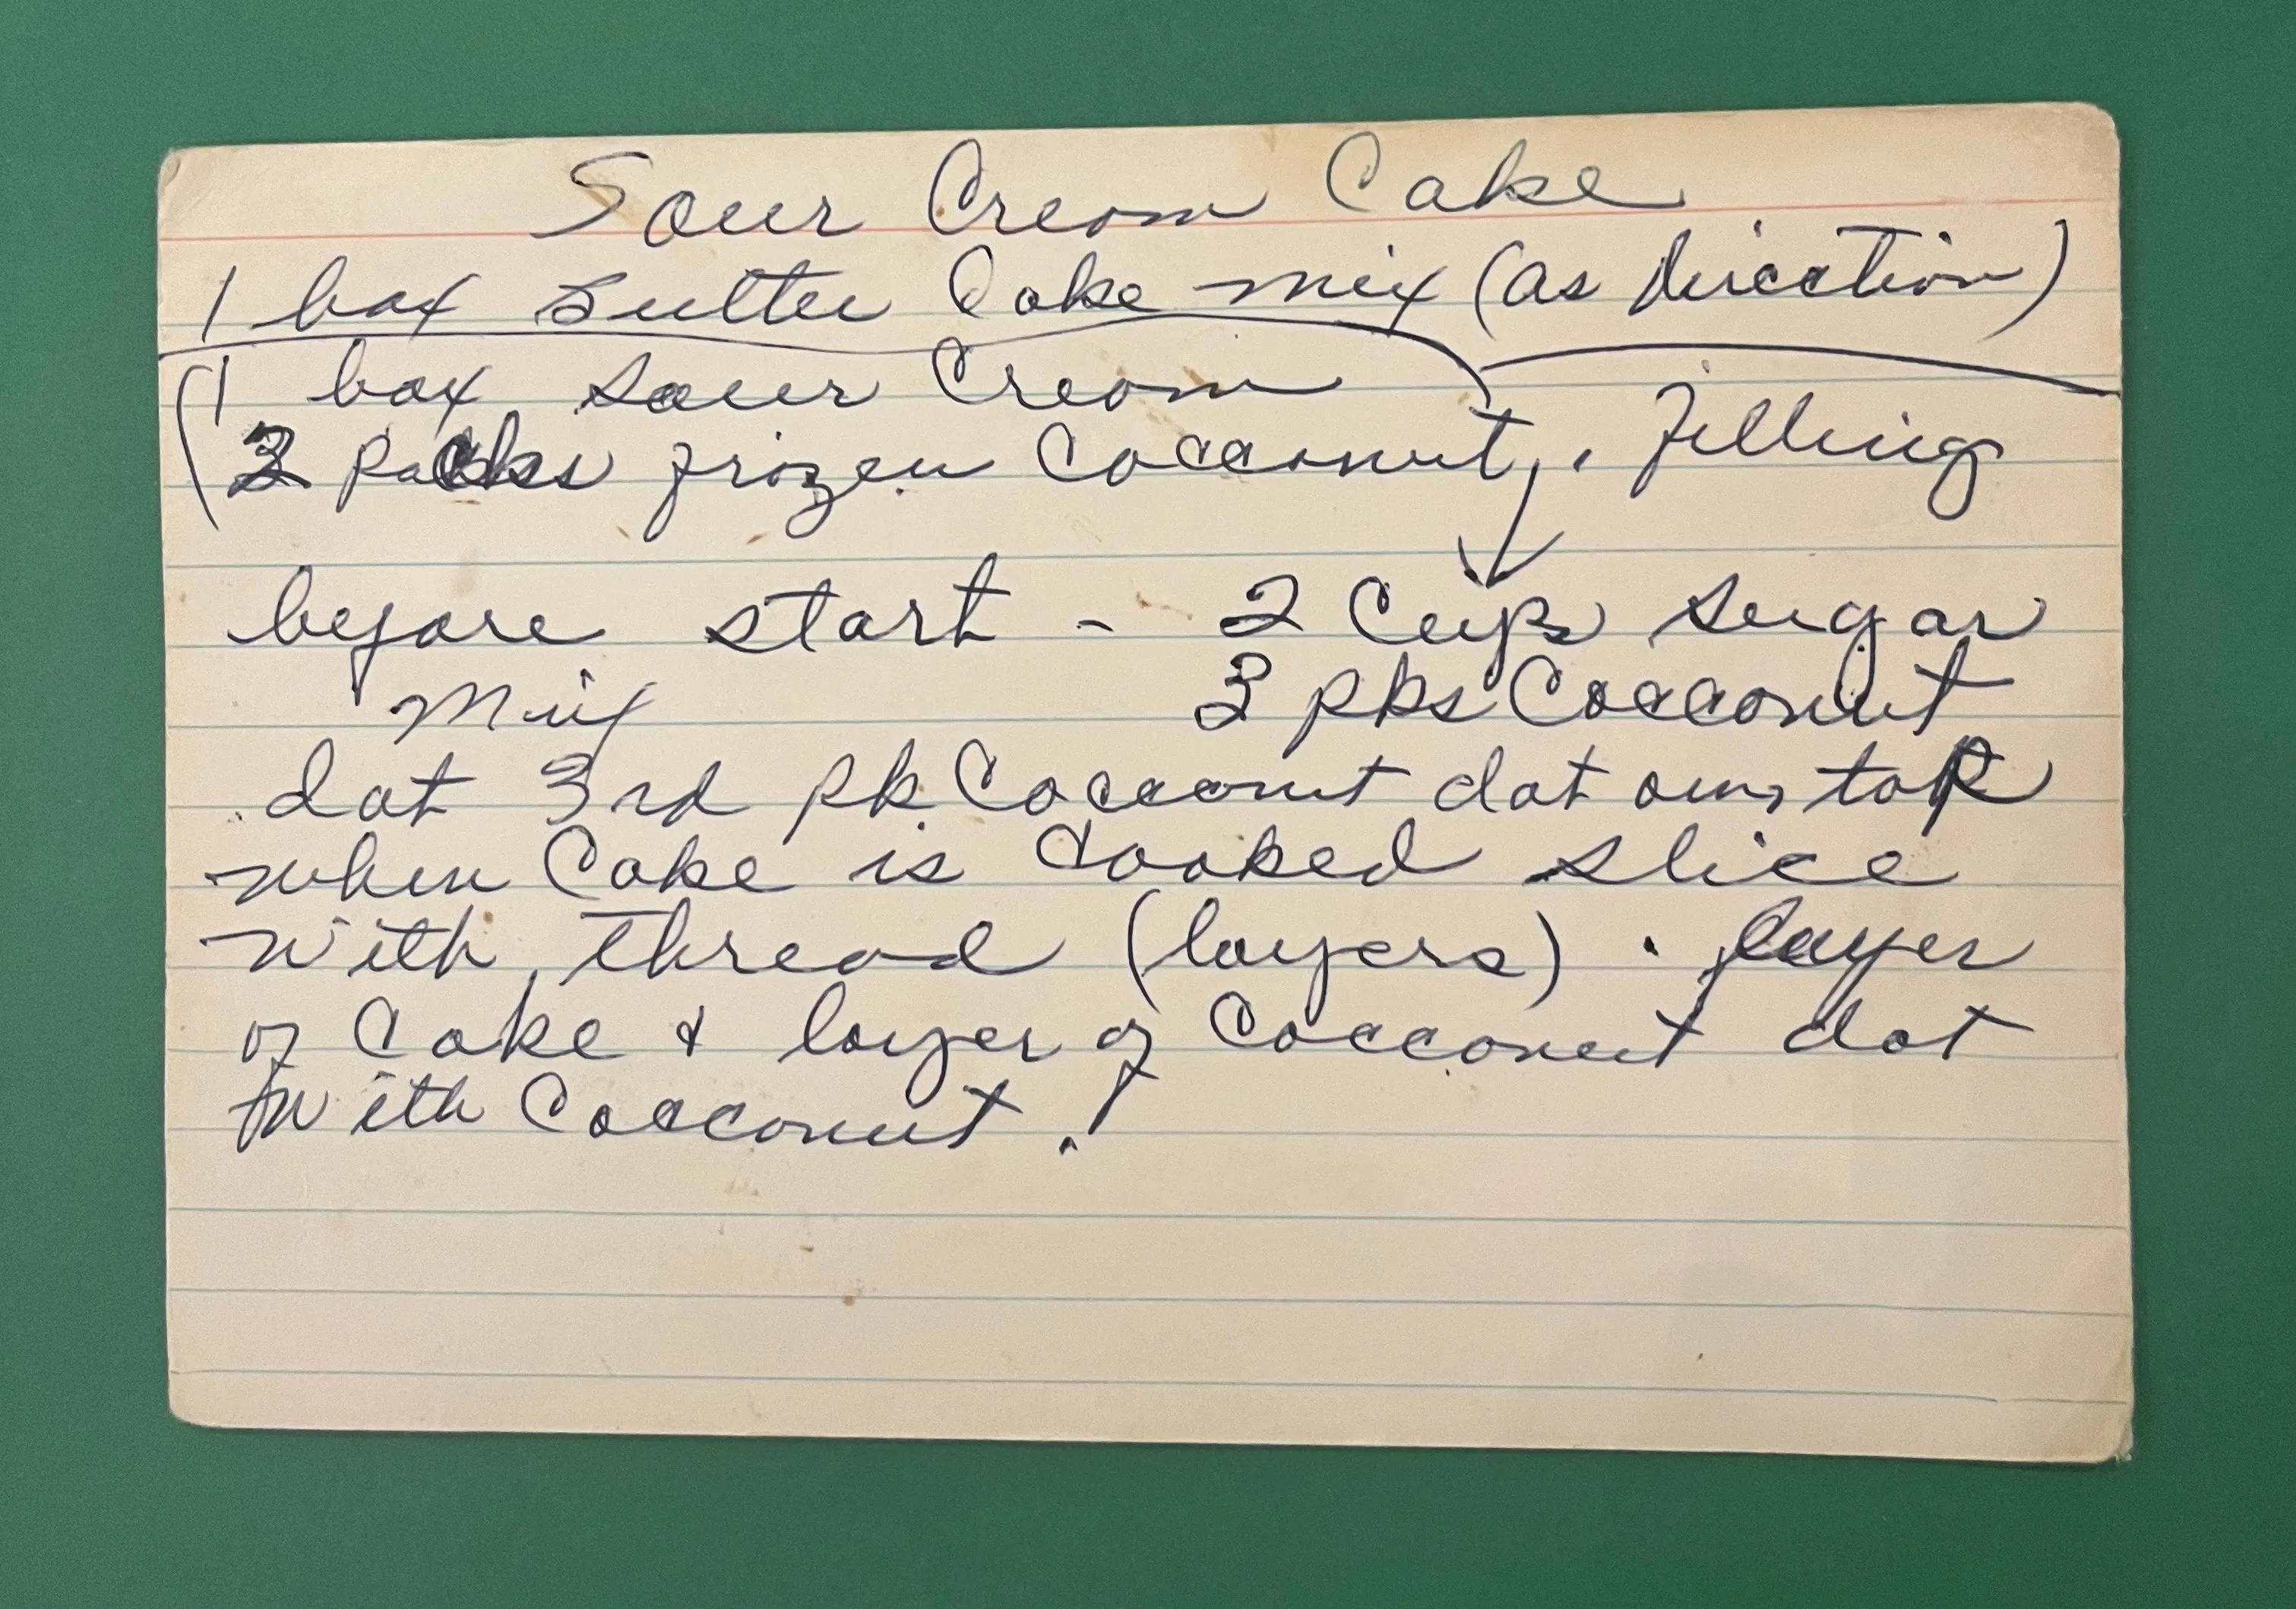 Sour Cream Cake
1 box Butter Cake mix (as direction)
(1 box sour Cream
packs frozen Cocconut, . filling
before start - 2 Cups sugar
mix 3 pks Cocconut
dot 3rd pk Cocconut dot on top
when Cake is Cooked slice
with thread (layers). layer
of Cake & layer of Cocconut dot
with Cocconut.